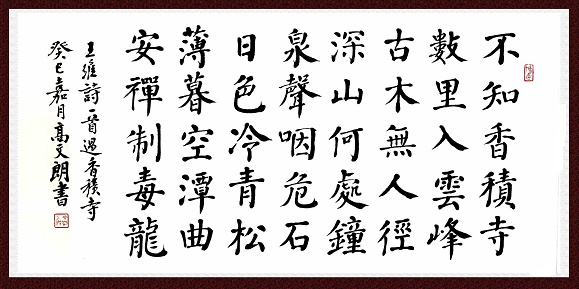 不知香積寺
數里入雲峰
古木無人徑
深山何處鐘
泉聲咽危石
日色冷青松
薄暮空潭曲
安禪制毒龍
王維詩一首過香積寺
癸巳嘉月高文朗書